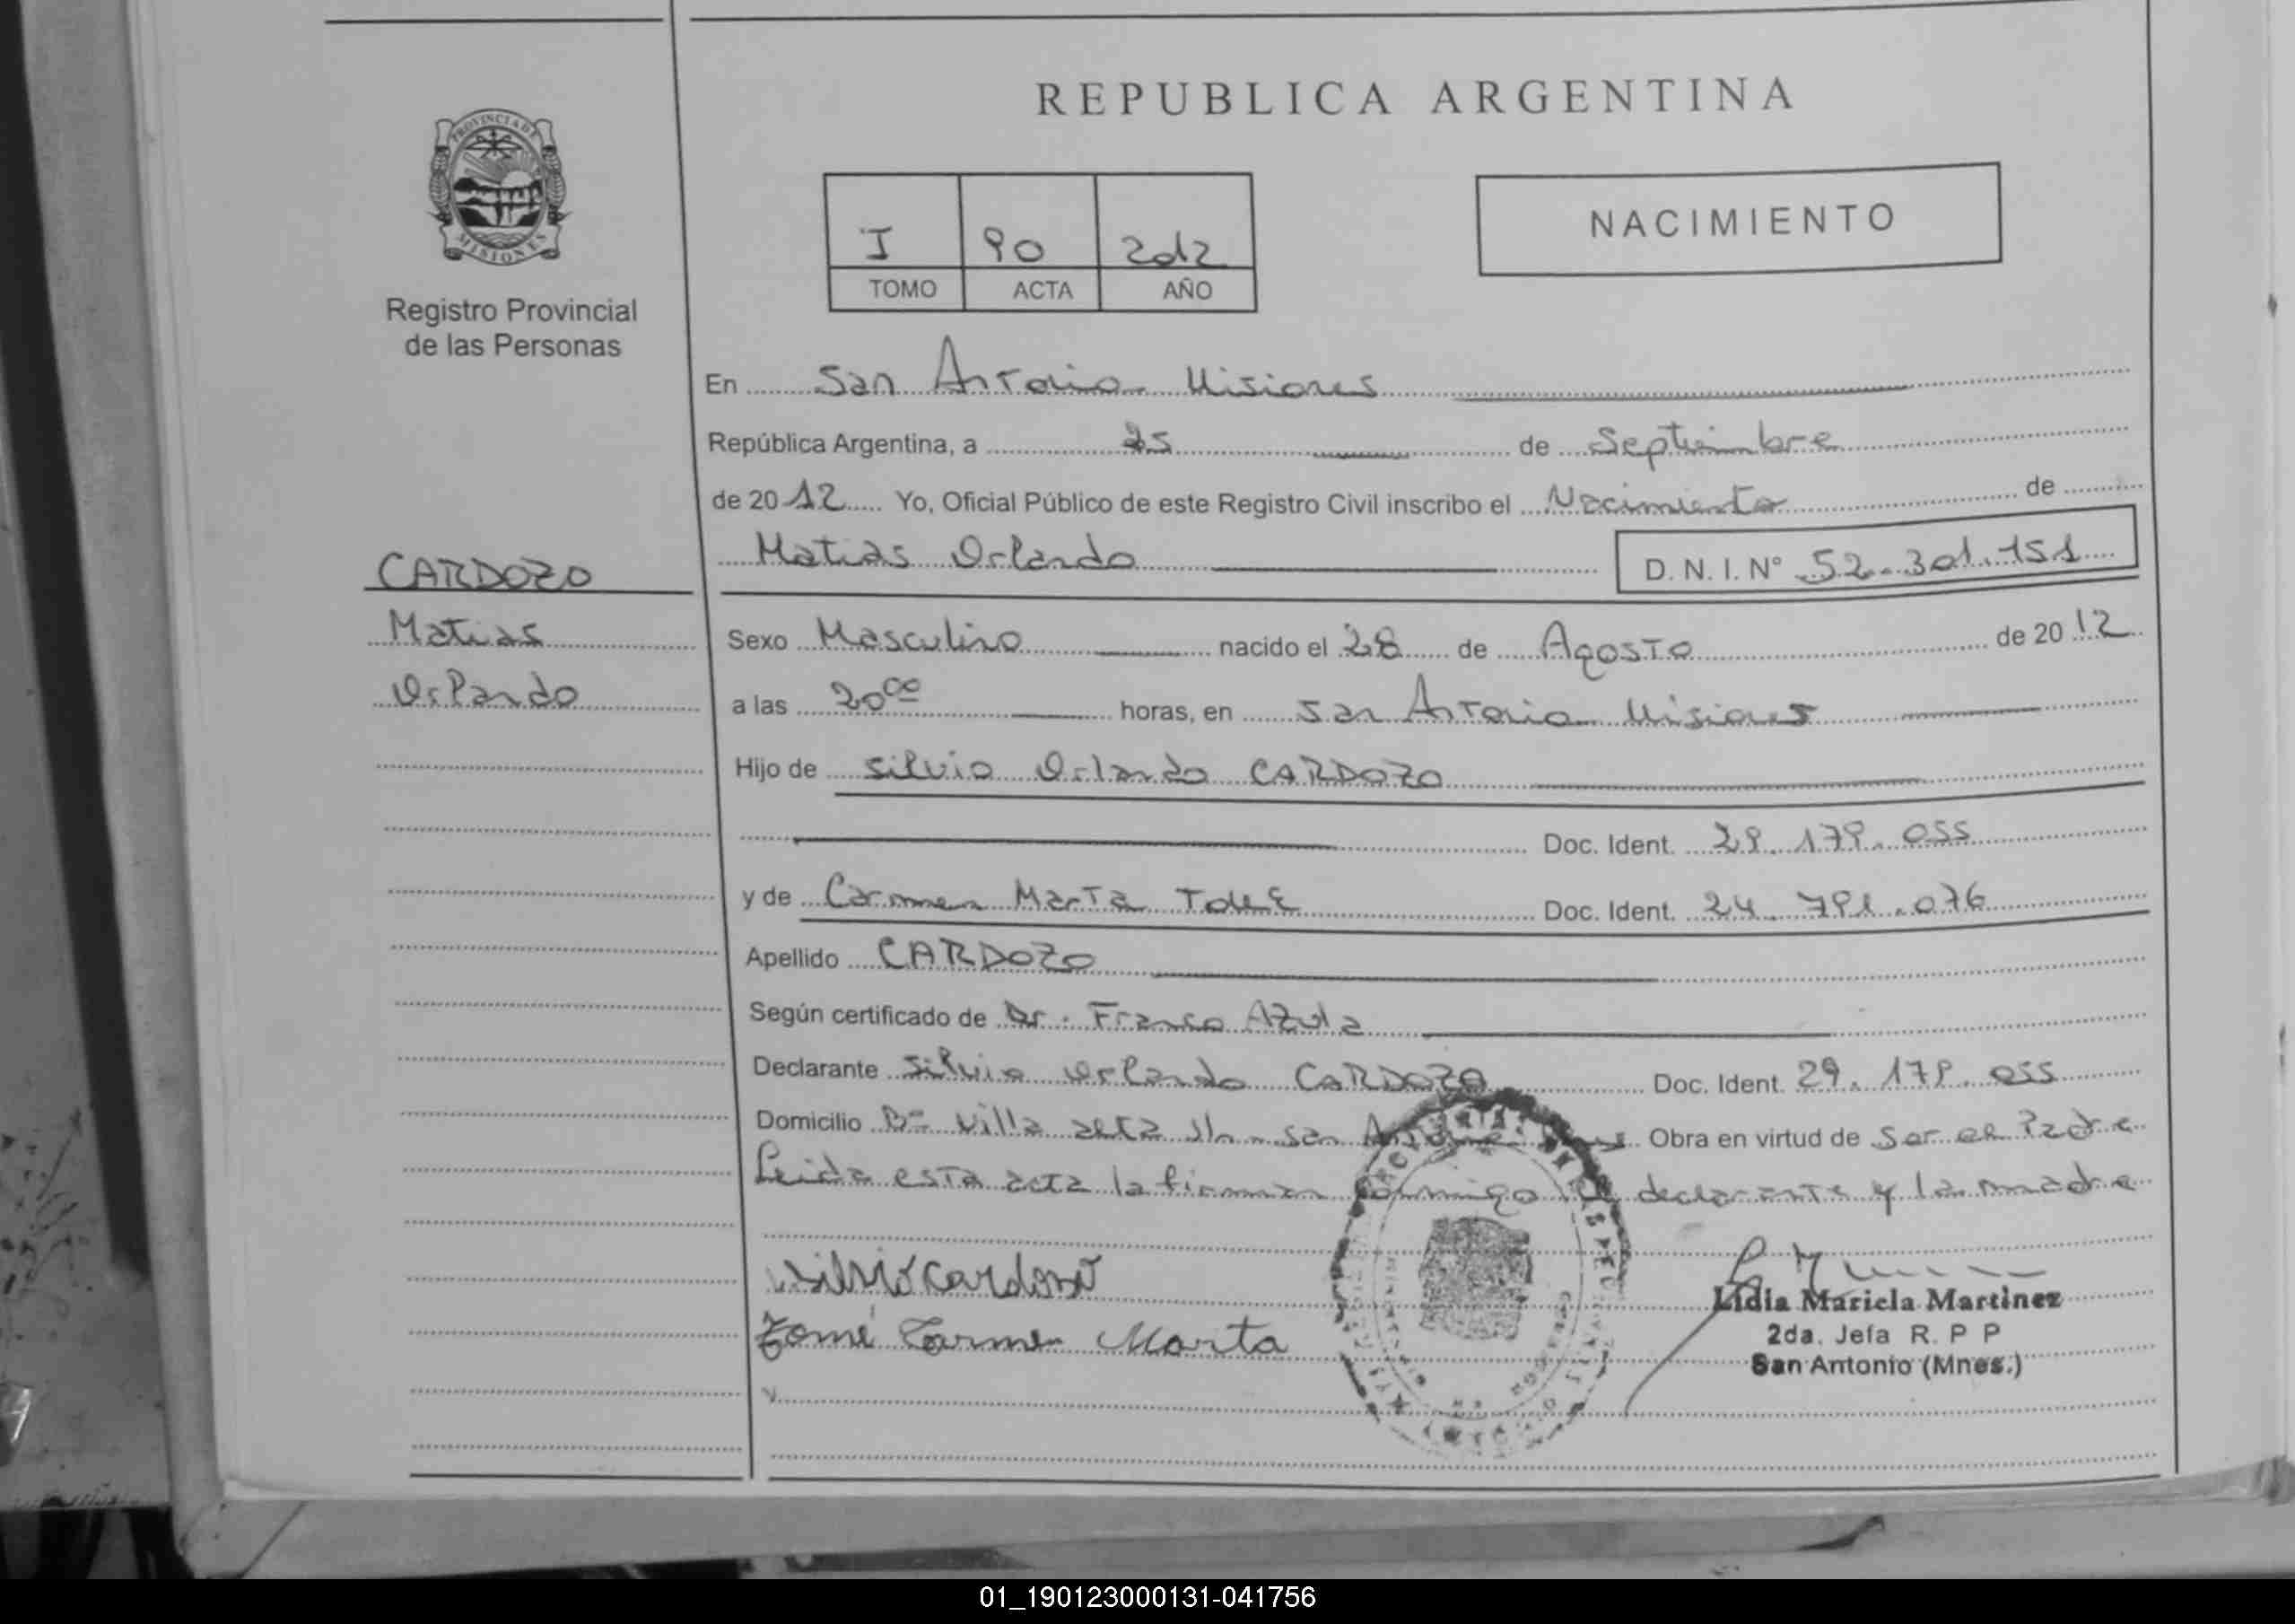 REPUBLICA ARGENTINA
PROVINCIA DE
MISIONES
Registro Provincial
de las Personas
I 90 2012
TOMO ACTA AÑO
NACIMIENTO
En San Antonio Misiones
República Argentina, a 25 de Septiembre
de 2012 Yo, Oficial Público de este Registro Civil inscribo el Nacimiento de
Matias Orlando D. N. I. Nº 52.301.151
CARDOZO
Matias
Orlando
Sexo Masculino nacido el 28 de Agosto de 2012
a las 20 00 horas, en San Antonio Misiones
Hijo de Silvio Orlando CARDOZO
Doc. Ident. 29.179.055
y de Carmen Marta Doc. Ident. 24.791.076
Apellido CARDOZO
Según certificado de Dr. Franco Azula
Declarante Silvio Orlando CARDOZO Doc. Ident. 29.179.055
Domicilio Bº Villa s/n - San Obra en virtud de Ser el Padre
Leida esta acta la firman conmigo el declarante y la madre
Silvio Cardozo
Tomé Carmen Marta
Lidia Mariela Martinez
2da. Jefa R. P P
San Antonio (Mnes.)
01_190123000131-041756